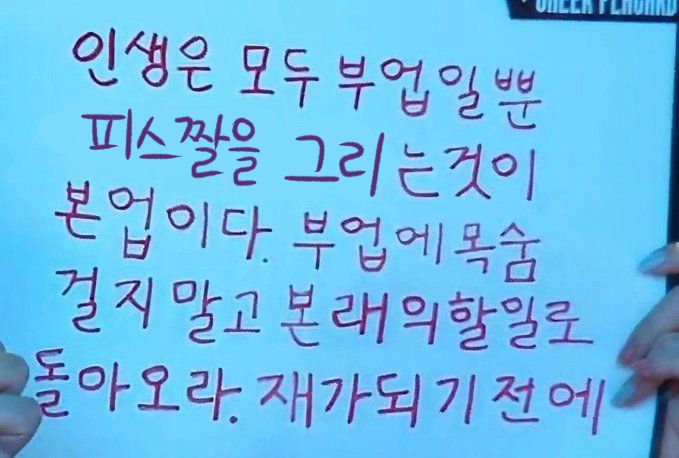 CHEER PLACARD
인생은 모두 부업일뿐
피스짤을 그리는것이
본업이다. 부업에목숨
걸지말고 본래의할일로
돌아오라. 재가되기전에